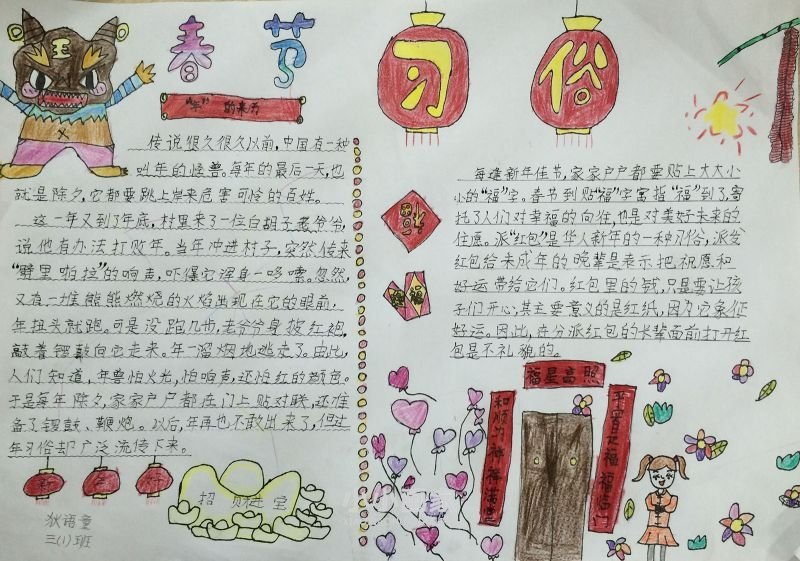 春节
习俗
“年”的来历
传说很久很久以前，中国有一种
叫年的怪兽。每年的最后一天，也
就是除夕，它都要跳上岸来危害可怜的百姓。
这一年又到了年底，村里来了一位白胡子老爷爷，
说他有办法打败年。当年冲进村子，突然传来
“劈里啪拉”的响声，吓得它浑身一哆嗦。忽然，
又有一堆熊熊燃烧的火焰出现在它的眼前，
年扭头就跑。可是没跑几步，老爷爷身披红袍，
敲着锣鼓向它走来。年一溜烟地逃走了。由此，
人们知道，年兽怕火光，怕响声，还怕红的颜色。
于是每年除夕，家家户户都在门上贴对联，还准
备了锣鼓、鞭炮。以后，年再也不敢出来了，但过
年习俗却广泛流传下来。
招财进宝
狄语童
三(1)班
每逢新年佳节，家家户户都要贴上大大小
小的“福”字。春节到贴“福”字寓指“福”到了，寄
托了人们对幸福的向往，也是对美好未来的
住愿。派“红包”是华人新年的一种习俗，派发
红包给未成年的晚辈是表示把祝愿和
好运带给它们。红包里的钱，只是要让孩
子们开心，其主要意义的是红纸，因为它象征
好运。因此，在分派红包的长辈面前打开红
包是不礼貌的。
福
福
福星高照
和顺为祥祥满堂
福福临门